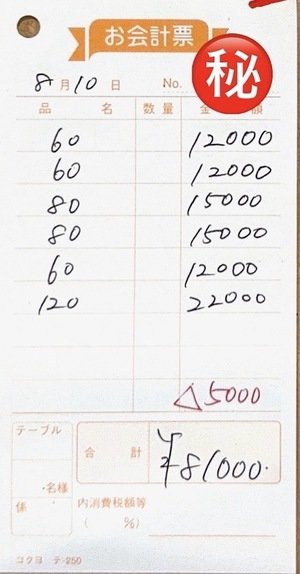 お会計票
8月10日 No. ㊙
品名 数量 金額
60 12000
60 12000
80 15000
80 15000
60 12000
120 22000
△5000
テーブル
合計 ¥81000.
名様
係 内消費税額等
( %)
コクヨ テ-250